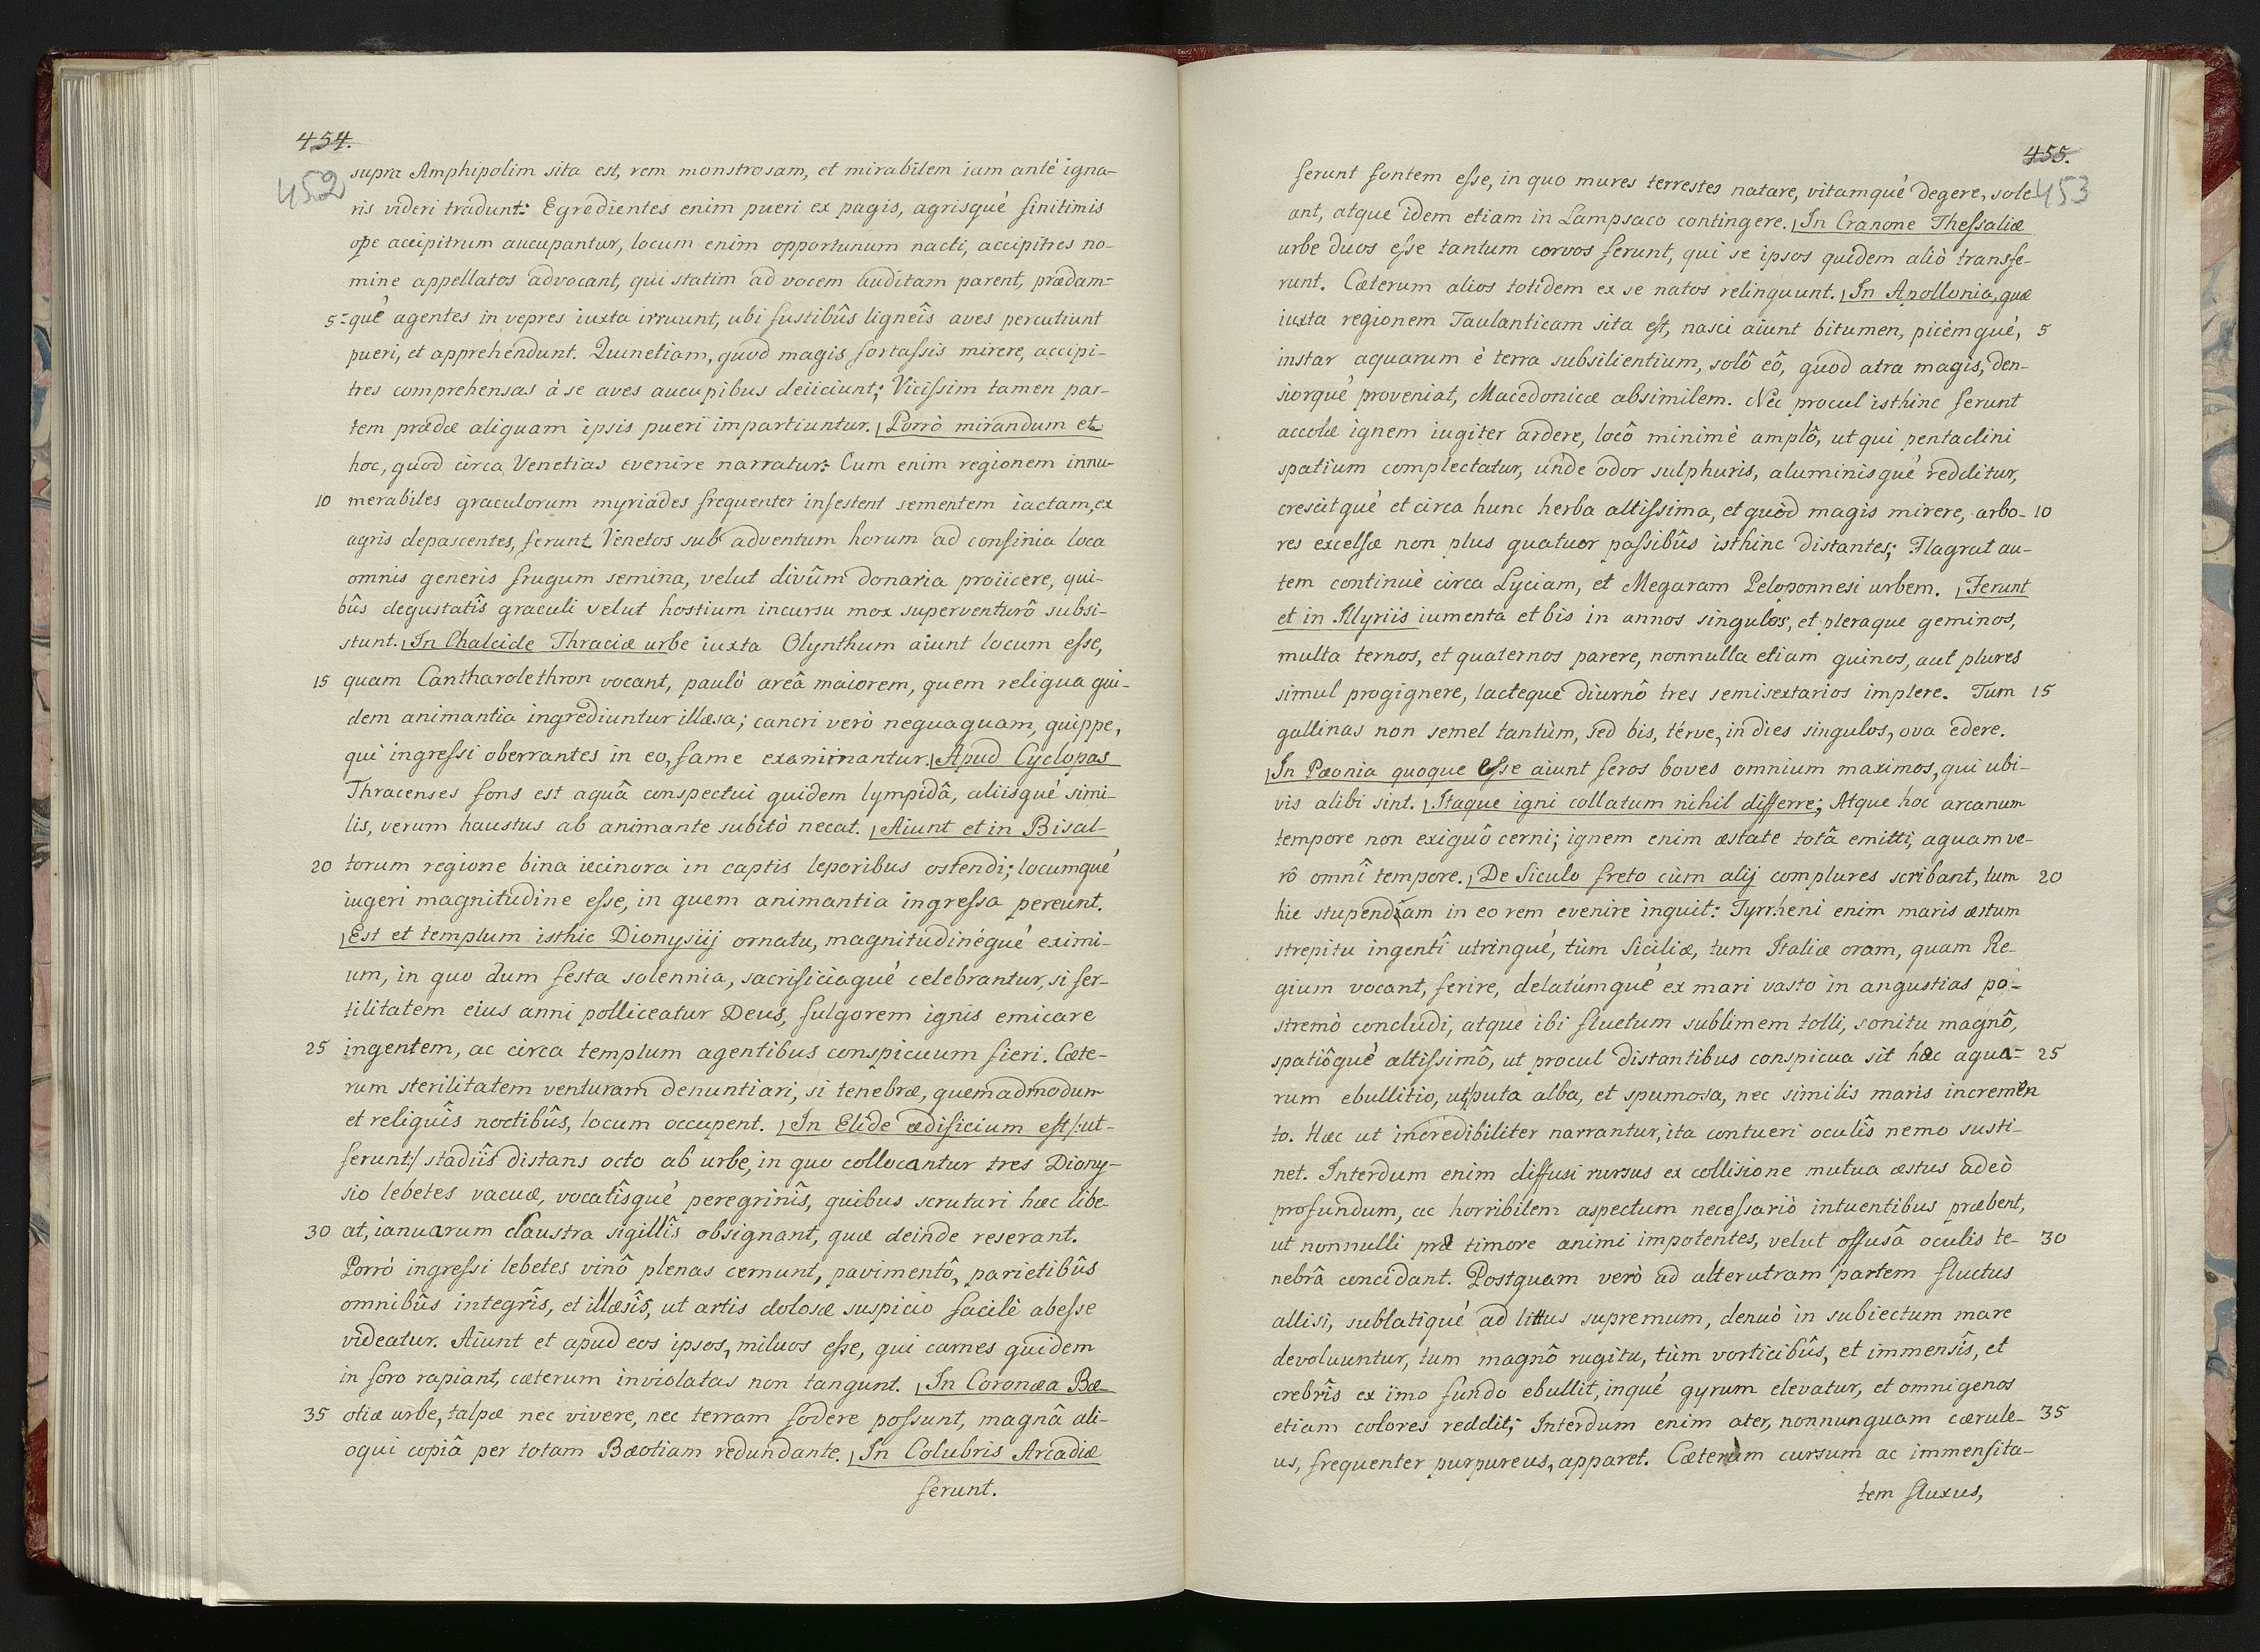 454.
452
supra Amphipolim sita est, rem monstrosam, et mirabilem iam antè igna-
ris videri tradunt: Egredientes enim pueri ex pagis, agrisqué finitimis
ope accipitrum aucupantur, locum enim opportunum nacti, accipitres no-
mine appellatos advocant, qui statim ad vocem auditam parent, prædam=
5 =qué agentes in vepres iuxta irruunt, ubi fustibûs ligneîs aves percutiunt
pueri, et apprehendunt. Quinetiam, quod magis fortassis mirere, accipi-
tres comprehensas à se aves aucupibus deiiciunt; Vicissim tamen par-
tem prædæ aliquam ipsis pueri impartiuntur. Porrò mirandum et
hoc, quod circa Venetias evenire narratur: Cum enim regionem innu-
10 merabiles graculorum myriades frequenter infestent sementem iactam, ex
agris depascentes, ferunt Venetos sub adventum horum ad confinia loca
omnis generis frugum semina, velut divûm donaria proiicere, qui-
bûs degustatîs graculi velut hostium incursu mox superventurô subsi-
stunt. In Chalcide Thraciæ urbe iuxta Olynthum aiunt locum esse,
15 quam Cantharolethron vocant, paulò areâ maiorem, quem reliqua qui-
dem animantia ingrediuntur illæsa; cancri verò nequaquam, quippe,
qui ingressi oberrantes in eo, fame exanimantur. Apud Cyclopas
Thracenses fons est aquâ conspectui quidem lympidâ, aliisqué simi-
lis, verum haustus ab animante subitò necat. Aiunt et in Bisal-
20 torum regione bina iecinora in captis leporibus ostendi; locumqué
iugeri magnitudine esse, in quem animantia ingressa pereunt.
Est et templum isthic Dionysiij ornatu, magnitudinéqué eximi-
um, in quo dum festa solennia, sacrificiaqué celebrantur, si fer-
tilitatem eius anni polliceatur Deus, fulgorem ignis emicare
25 ingentem, ac circa templum agentibus conspicuum fieri. Cæte-
rum sterilitatem venturam denuntiari, si tenebræ, quemadmodum
et reliquîs noctibûs, locum occupent. In Elide ædificium est /:ut-
ferunt:/ stadiîs distans octo ab urbe, in quo collocantur tres Diony-
sio lebetes vacuæ, vocatîsqué peregrinîs, quibus scruturi hæc libe-
30 at, ianuarum claustra sigillîs obsignant, quæ deinde reserant.
Porrò ingressi lebetes vinô plenas cernunt, pavimentô, parietibûs
omnibûs integrîs, et illæsîs, ut artis dolosæ suspicio facilè abesse
videatur. Aiunt et apud eos ipsos, miluos esse, qui carnes quidem
in foro rapiant, cæterum inviolatas non tangunt. In Coronæa Bæ-
35 otiæ urbe, talpæ nec vivere, nec terram fodere possunt, magnâ ali-
oqui copiâ per totam Bæotiam redundante. In Colubris Arcadiæ
ferunt.
455.
453
ferunt fontem esse, in quo mures terrestes natare, vitamqué degere, sole-
ant, atque idem etiam in Lampsaco contingere. In Cranone Thessaliæ
urbe duos esse tantum corvos ferunt, qui se ipsos quidem aliò transfe-
runt. Cæterum alios totidem ex se natos relinquunt. In Apollonia, quæ
iuxta regionem Taulanticam sita est, nasci aiunt bitumen, picèmqué, 5
instar aquarum è terra subsilientium, solô eô, quod atra magis, den-
siorqué proveniat, Macedonicæ absimilem. Nec procul isthinc ferunt
accolæ ignem iugiter ardere, locô minimè amplô, ut qui pentaclini
spatium complectatur, unde odor sulphuris, aluminisqué redditur,
crescitqué et circa hunc herba altissima, et quòd magis mirere, arbo- 10
res excelsæ non plus quatuor passibûs isthinc distantes; Flagrat au-
tem continuè circa Lyciam, et Megaram Peloponnesi urbem. Ferunt
et in Illyriis iumenta et bis in annos singulos, et pleraque geminos,
multa ternos, et quaternos parere, nonnulla etiam quinos, aut plures
simul progignere, lacteque diurnô tres semisextarios implere. Tum 15
gallinas non semel tantùm, sed bis, térve, in dies singulos, ova edere.
In Pæonia quoque esse aiunt feros boves omnium maximos, qui ubi-
vis alibi sint. Itaque igni collatum nihil differre; Atque hoc arcanum
tempore non exiguô cerni; ignem enim æstate totâ emitti, aquam ve-
rô omnî tempore. De Siculo freto cùm alij complures scribant, tum 20
hic stupendam in eo rem evenire inquit: Tyrrheni enim maris æstum
strepitu ingentî utrinqué, tùm Siciliæ, tum Italiæ oram, quam Re-
gium vocant, ferire, delatúmqué ex mari vasto in angustias po-
stremò concludi, atque ibi fluctum sublimem tolli, sonitu magnô,
spatiôqué altissimô, ut procul distantibus conspicua sit hæc aqua= 25
rum ebullitio, ut puta alba, et spumosa, nec similis maris incremen
to. Hæc ut incredibiliter narrantur, ita contueri oculîs nemo susti-
net. Interdum enim diffusi rursus ex collisione mutua æstus adeò
profundum, ac horribilem aspectum necessariò intuentibus præbent,
ut nonnulli præ timore animi impotentes, velut offusâ oculis te- 30
nebrâ concidant. Postquam verò ad alterutram partem fluctus
allisi, sublatiqué ad littus supremum, denuò in subiectum mare
devoluuntur, tum magnô rugitu, tùm vorticibûs, et immensîs, et
crebrîs ex imo fundo ebullit, inqué gyrum elevatur, et omnigenos
etiam colores reddit; Interdum enim ater, nonnunquam cærule- 35
us, frequenter purpureus, apparet. Cæterum cursum ac immensita-
tem fluxus,